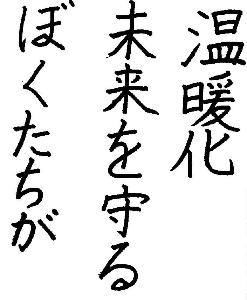 温暖化
未来を守る
ぼくたちが